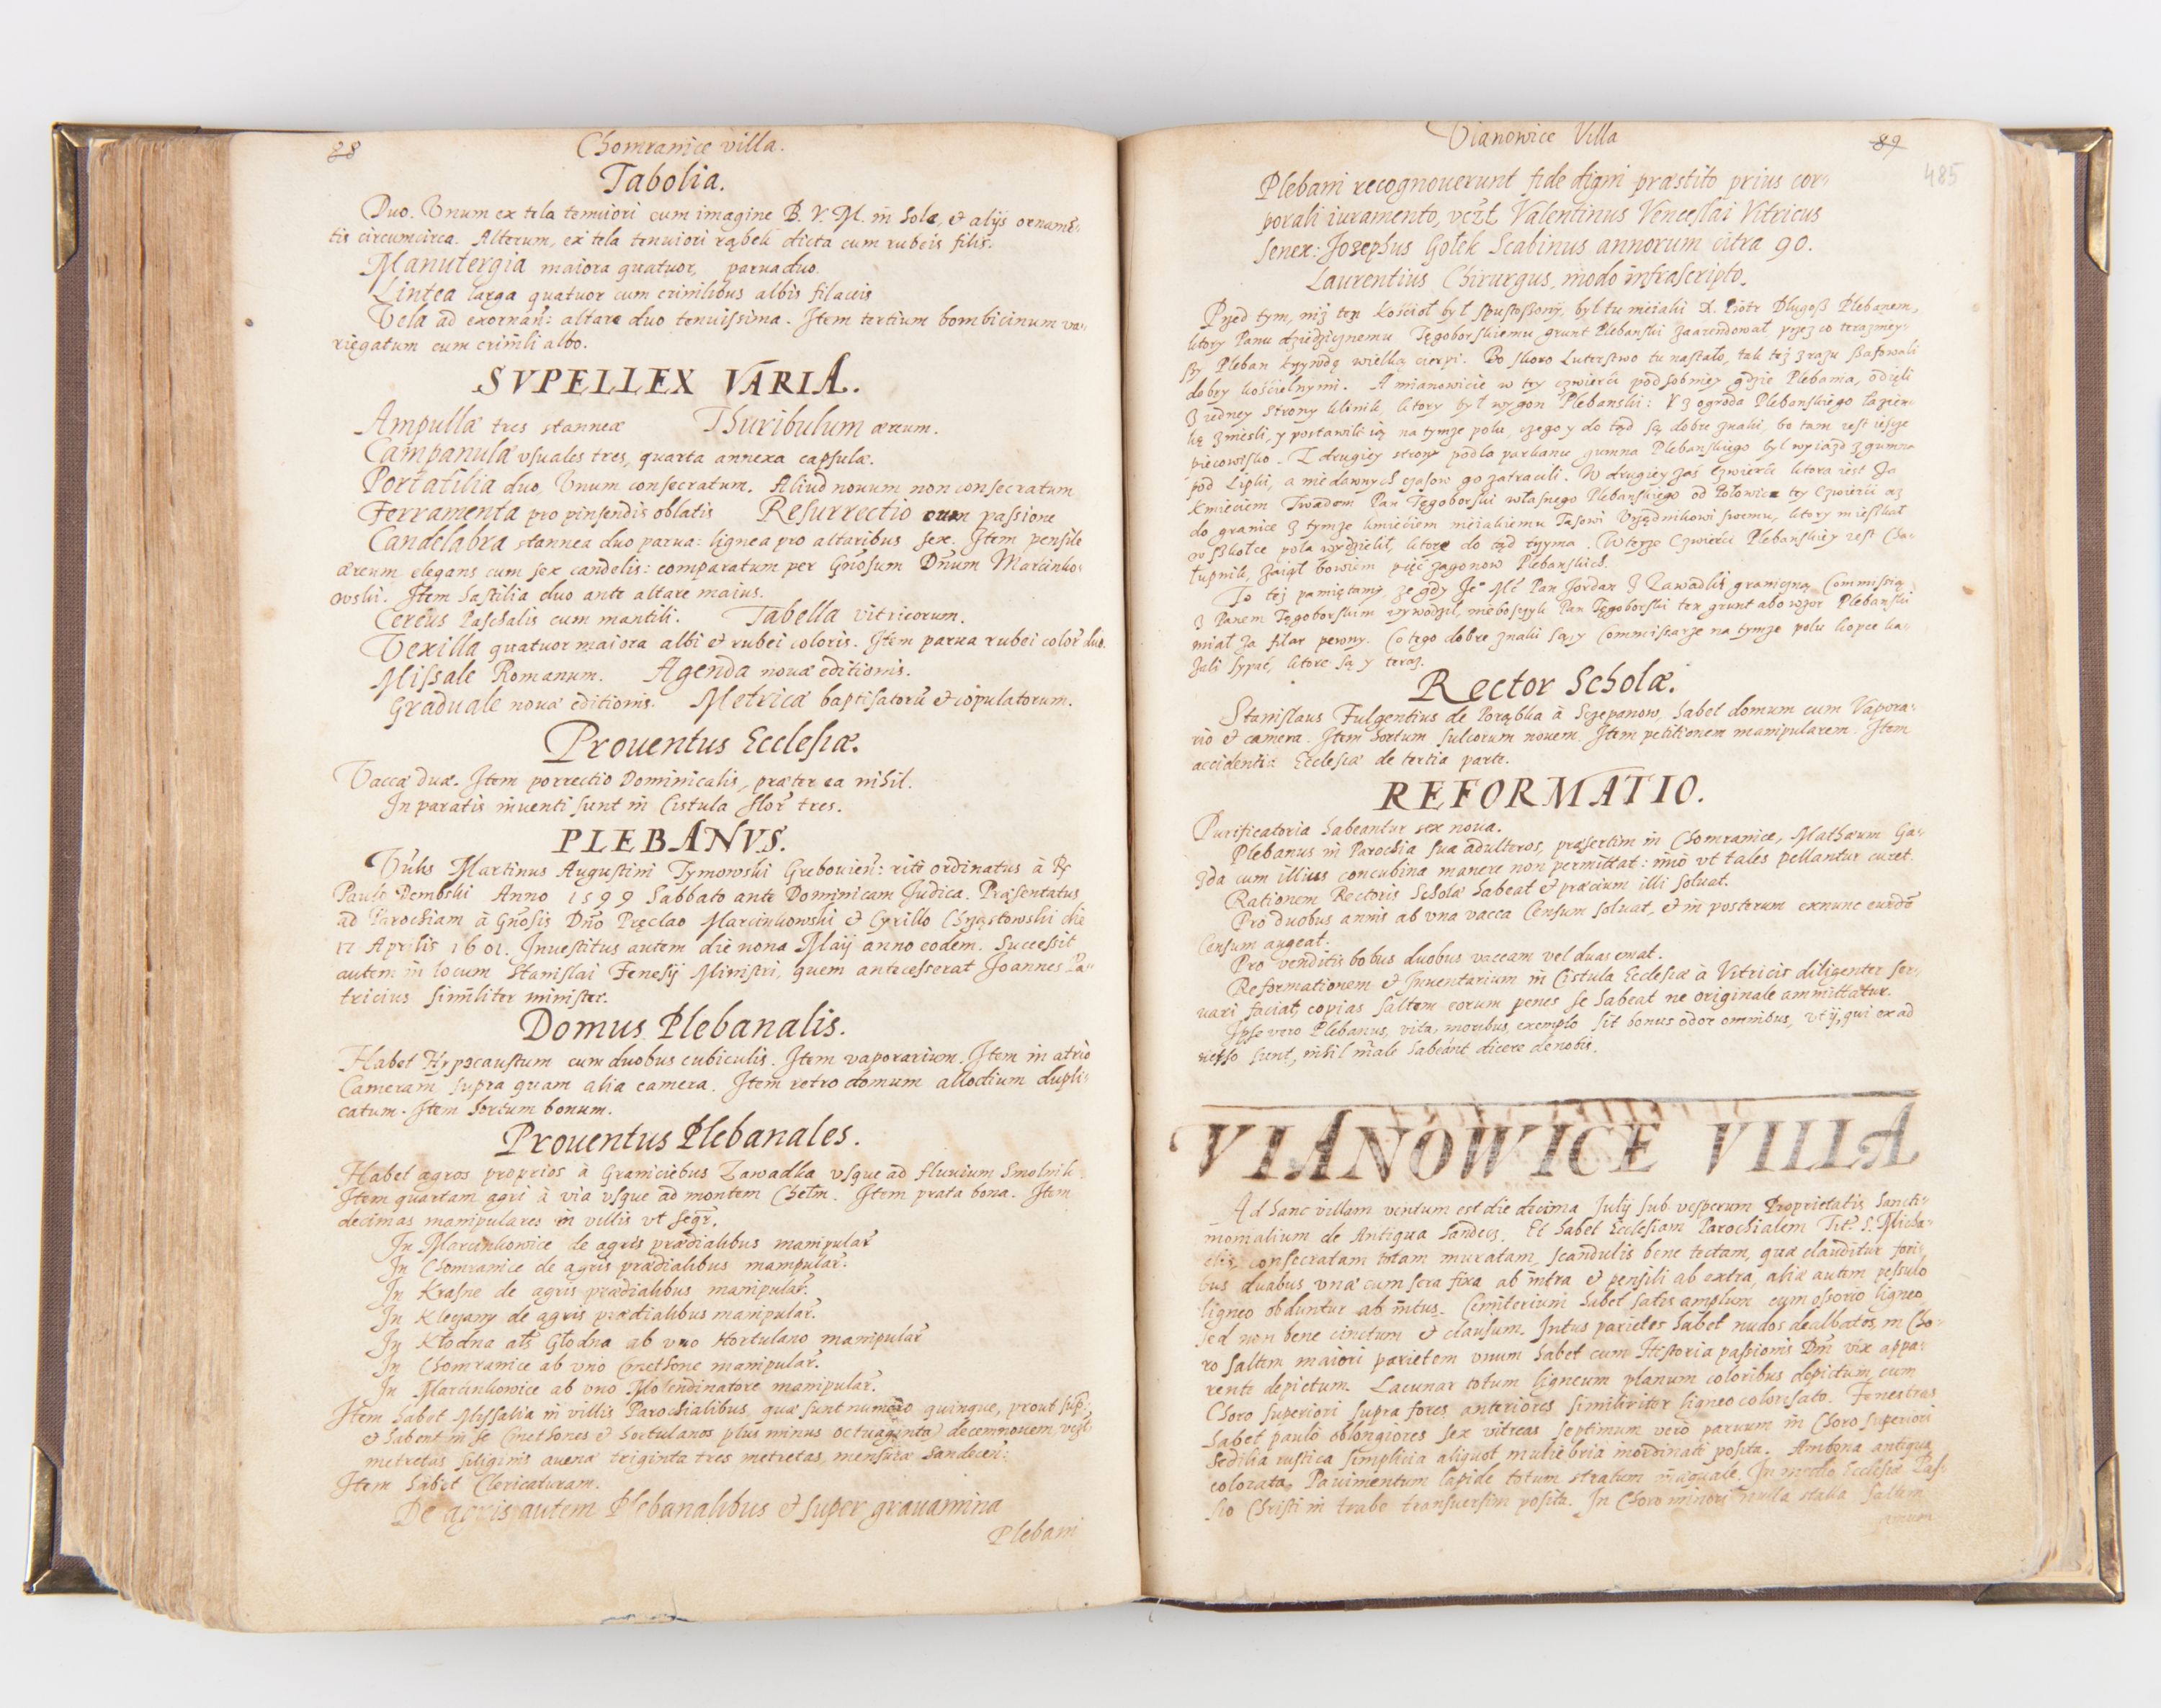 88
Chomranice villa.
Tabolia.
Duo. Vnum ex tela tenuiori cum imagine B. V. M. in Sole, et alijs ornamē-
tis circumcirca. Alterum, ex tela tenuiori rąbek dicta cum rubeis filis.
Manutergia maiora quatuor, parua duo.
Lintea larga quatuor cum crinilibus albis filaceis
Vela ad exornañ: altare duo tenuissima. Item tertium bombicinum va-
riegatum cum crinili albo.
SVPELLEX VARIA.
Ampullæ tres stanneæ Thuribulum æreum.
Campanulæ vsuales tres, quarta annexa capsulæ.
Portatilia duo, Vnum consecratum. Aliud nouum non consecratum
Ferramenta pro pinsendis oblatis Resurrectio cum passione
Candelabra stannea duo parua: lignea pro altaribus sex. Item pensile
æreum elegans cum sex candelis: comparatum per Gñosum Dñum Marcinko-
wski. Item hastilia duo ante altare maius.
Cereus Paschalis cum mantili. Tabella vitricorum.
Vexilla quatuor maiora albi et rubei coloris. Item parua rubei color duo.
Missale Romanum. Agenda nouæ editionis.
Graduale nouæ editionis. Metrica baptisatorū et copulatorum.
Prouentus Ecclesiæ.
Vaccæ duæ. Item porrectio Dominicalis, præter ea nihil.
In paratis inuenti sunt in Cistula flor tres.
PLEBANVS.
Martinus Augustini Tymowski Grebouień: ritè ordinatus à
Paulo Dembski Anno 1599 Sabbato ante Dominicam Judica. Præsentatus
ad Parochiam à Gñosis Dño Pręclao Marcinkowski et Cyrillo Chrząstowski die
17 Aprilis 1601. Inuestitus autem die nona Maij anno eodem. Successit
autem in locum Stanislai Fenesij Ministri, quem antecesserat Joannes Pa-
tricius similiter minister.
Domus Plebanalis.
Habet Hypocaustum cum duobus cubiculis. Item vaporarium. Item in atrio
Cameram supra quam alia camera. Item retro domum allodium dupli-
catum. Item hortum bonum.
Prouentus Plebanales.
Habet agros proprios à Graniciebus Zawadka vsque ad fluuium Smolnik
Item quartam agri à via vsque ad montem Chełm. Item prata bona. Item
decimas manipulares in villis vt seqr.
In Marcinkowice de agris prædialibus manipular
In Chomranice de agris prædialibus manipular.
In Krasne de agris prædialibus manipular.
In Kleczany de agris prædialibus manipular.
In Kłodna als Głodna ab vno Hortulano manipular
In Chomranice ab vno Cmethone manipular.
In Marcinkowice ab vno Molendinatore manipular.
Item habet Missalia in villis Parochialibus quæ sunt numero quinque, prout sup:
et habent in se Cmethones et hortulanos plus minus octuaginta decemnouem, vigt
metretas siliginis auenæ triginta tres metretas, mensuræ Sandecen:
Item habet Clericaturam.
De agris autem Plebanalibus et super grauamina
Plebani
Vianowice Villa
89
485
Plebani recognouerunt fide digni præstito prius cor-
porali iuramento, vczt Valentinus Venceslai Vitricus
senex: Josephus Gołek Scabinus annorum citra 90.
Laurentius Chirurgus, modo infrascripto.
Przed tym, niż ten kościoł był spustoszony, był tu nieiaki X. Piotr Długosz Plebanem,
ktory Panu dziedzicznemu Tęgoborskiemu grunt Plebanski zaarendował, przez co terazniey-
szy Pleban krzywdę wielką cierpi. Bo skoro Luterstwo tu nastało, tak też zrazu szafowali
dobry kościelnymi. A mianowicie w tey czwierci pod sobniey gdzie Plebania, odięli
z iedney strony klinik, ktory był wygon Plebanski: Y z ogroda Plebanskiego łazien-
kę zniesli, y postawili ią na tymże polu, czego y do tąd są dobre znaki, bo tam iest ieszcze
piecowisko. Z drugiey strony podla parkanu gumna Plebanskiego był wyiazd z gumna
pod Lipki, a niedawnych czasow go zatracili. W drugiey zaś czwierci ktora iest za
Kmieciem Twadem Pan Tęgoborski własnego Plebanskiego od Połowice tey Czwierci aż
do granice z tymże kmieciem nieiakiemu Tasowi Vrzędnikowi swemu, ktory mieszkał
w szkołce pola wydzielił, ktore do tąd trzyma. Wteyże Czwierci Plebanskiey iest Cha-
łupnik, zaiął bowiem pięć zagonow Plebanskich.
To też pamiętamy, że gdy Je° Mć Pan Jordan z Zawadki graniczną Commissią
z Panem Tęgoborskim wywodził, nieboszczyk Pan Tęgoborski ten grunt abo wzor Plebanski
miał za filar pewny. Co tego dobre znaki są, y Commissarze na tymże polu kopce ka-
zali sypać, ktore są y teraz.
Rector Scholæ.
Stanislaus Fulgentius de Porąbka à Sczepanow, habet domum cum Vapora-
rio et camera. Item hortum sulcorum nouem. Item petitionem manipularem. Item
accidentia Ecclesiæ de tertia parte.
REFORMATIO.
Purificatoria habeantur sex noua.
Plebanus in Parochia sua adulteros, præsertim in Chomranice, Mathæum Ga-
zda cum illius concubina manere non permittat: imò vt tales pellantur curet.
Rationem Rectoris Scholæ habeat et præcium illi soluat.
Pro duobus annis ab vna vacca Censum soluat, et in posterum exnunc eundē
Censum augeat.
Pro venditis bobus duobus vaccam vel duas emat.
Reformationem et Inuentarium in Cistula Ecclesiæ à Vitricis diligenter ser-
uari faciat, copias saltem eorum penes se habeat ne originale ammittatur.
Ipse vero Plebanus, vita, moribus, exemplo sit bonus odor omnibus, vt ij, qui ex ad
uerso sunt, nihil male habeant dicere de nobis.
VIANOWICE VILLA
Ad hanc villam ventum est die decima Julij sub vesperum Proprietatis Sancti-
monialium de Antiqua Sandecz. Et habet Ecclesiam Parochialem Tit: S. Micha-
elis, consecratam totam muratam, scandulis bene tectam, quæ clauditur fori-
bus duabus vna cum sera fixa ab intra et pensili ab extra, aliæ autem pessulo
ligneo obduntur ab intus. Cemiterium habet satis amplum cum ossorio ligneo,
sed non bene cinctum et clausum. Intus parietes habet nudos dealbatos, in Cho-
ro saltem maiori parietem vnum habet cum Historia passionis Dñi vix appa-
rente depictum. Lacunar totum ligneum planum coloribus depictum, cum
Choro superiori supra fores anteriores similiriter ligneo colorisato. Fenestras
habet paulò oblongiores sex vitreas septimum verò paruum in Choro superiori
Sedilia rustica simplicia aliquot muliebria inordinatè posita. Ambona antiqua
colorata. Pauimentum lapide totum stratum inæquale. In medio Ecclesiæ Pas-
sio Christi in trabe transuersim posita. In Choro minori nulla stalla saltem